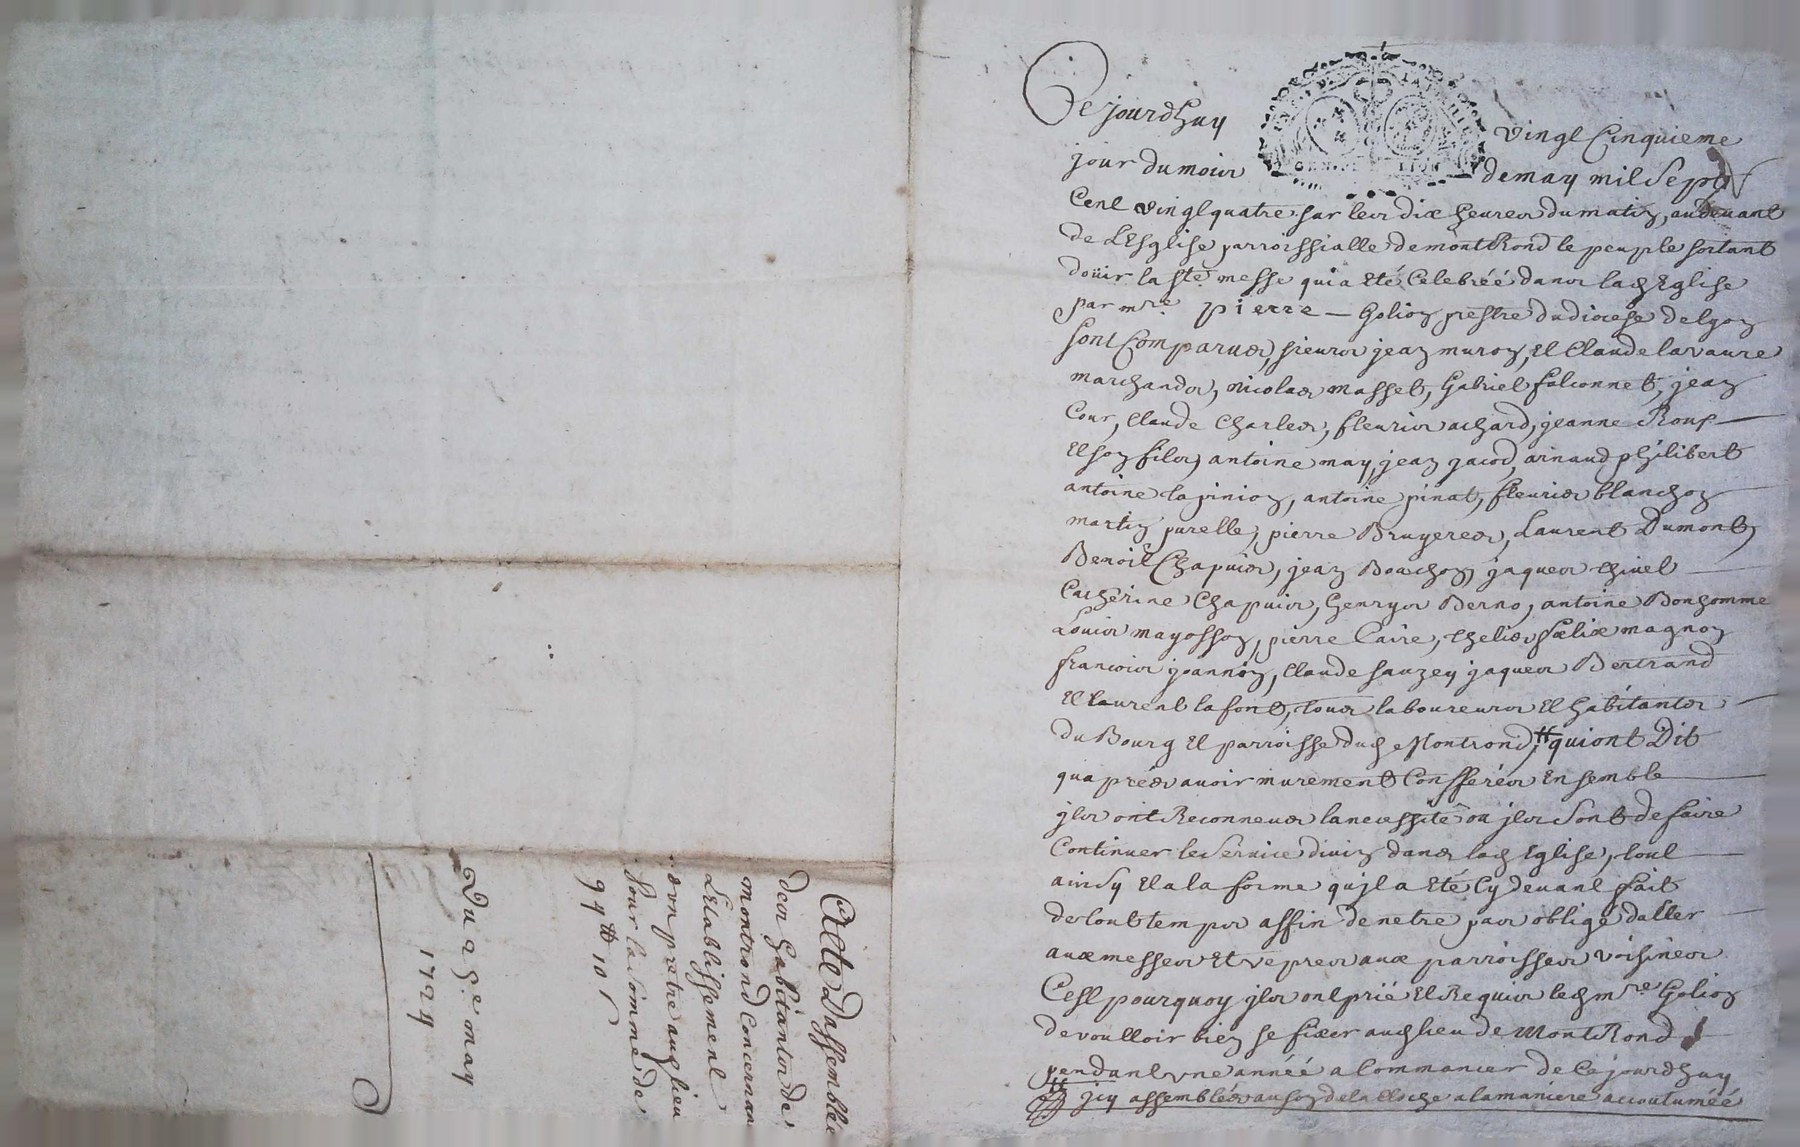 Cejourdhuy vingt Cinquieme
jour du mois de may mil Sept
Cent vingt quatre sur les dix heures du matin, au devant
de L'Esglise parroissialle de montRond le peuple sortant
doüir la ste messe qui a Eté Celebréé dans lad Eglise
par mre pierre Golion prestre du diocese de lyon
sont Comparues, sieurs jean muron, Et Claude lavaure
marchands, nicolas masset, Gabriel falconnet, jean
Cour, Claude Charles, fleuris achard, jeanne Rous
Et son fils, antoine may, jean jacod, arnaud philibert
antoine lapinion, antoine pinat, fleuries blanchon
martin purelle, pierre Bruyeres, Laurent Dumont,
Benoit Chapuis, jean Bouchon, jaques thivel
Catherine Chapuis, henrys Berno, antoine Bonhomme
Louis mayosson, pierre Caire, Chelies felix magnon
francois joannon, Claude sauzey jaques Bertrand
Et laurent lafont, tous laboureurs Et habitants
du Bourg Et parroisse dud Montrond, # qui ont Dit
qua prés avoir murement Confferés Ensemble
jls ont Reconneus la necessité ou jls sont de faire
Continuer le Service divin dans lad Eglise, tout
ainsy Et a la forme qu'jl a Eté Cy devant fait
de tout temps affin de netre pas obligé daller
aux messes Et vepres aux parroisses voisines
Cest pourquoy jls ont prié Et Requis led mre Golion
de voulloir bien se fixer aud lieu de MontRond
pendant vne annéé a Commancer de Cejourdhuy
# jcy assemblés au son de la Cloche a la maniere accoutuméé
Acte Dassemblé
des habitants de
montrond Concernan
L'Etablissement
dvn pretre aud lieu
Pour la somme de
94 ₶ 10 s
Du 25e may
1724